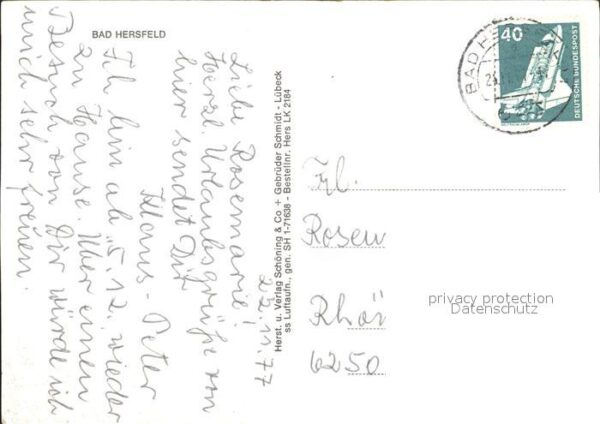 BAD HERSFELD
22.11.77
Liebe Rosemarie!
Herzl. Urlaubsgrüße von
hier sendet Dir
Klaus-Peter
Ich bin ab 5.12. wieder
zu Hause. Über einen
Besuch von Dir würde ich
mich sehr freuen.
Herst. u. Verlag Schöning & Co + Gebrüder Schmidt - Lübeck
ss Luftaufn., gen. SH 1-71638 - Bestellnr. Hers LK 2184
40
DEUTSCHE BUNDESPOST
BAD HE
Frl.
Rosem
Rhö
6250
privacy protection
Datenschutz